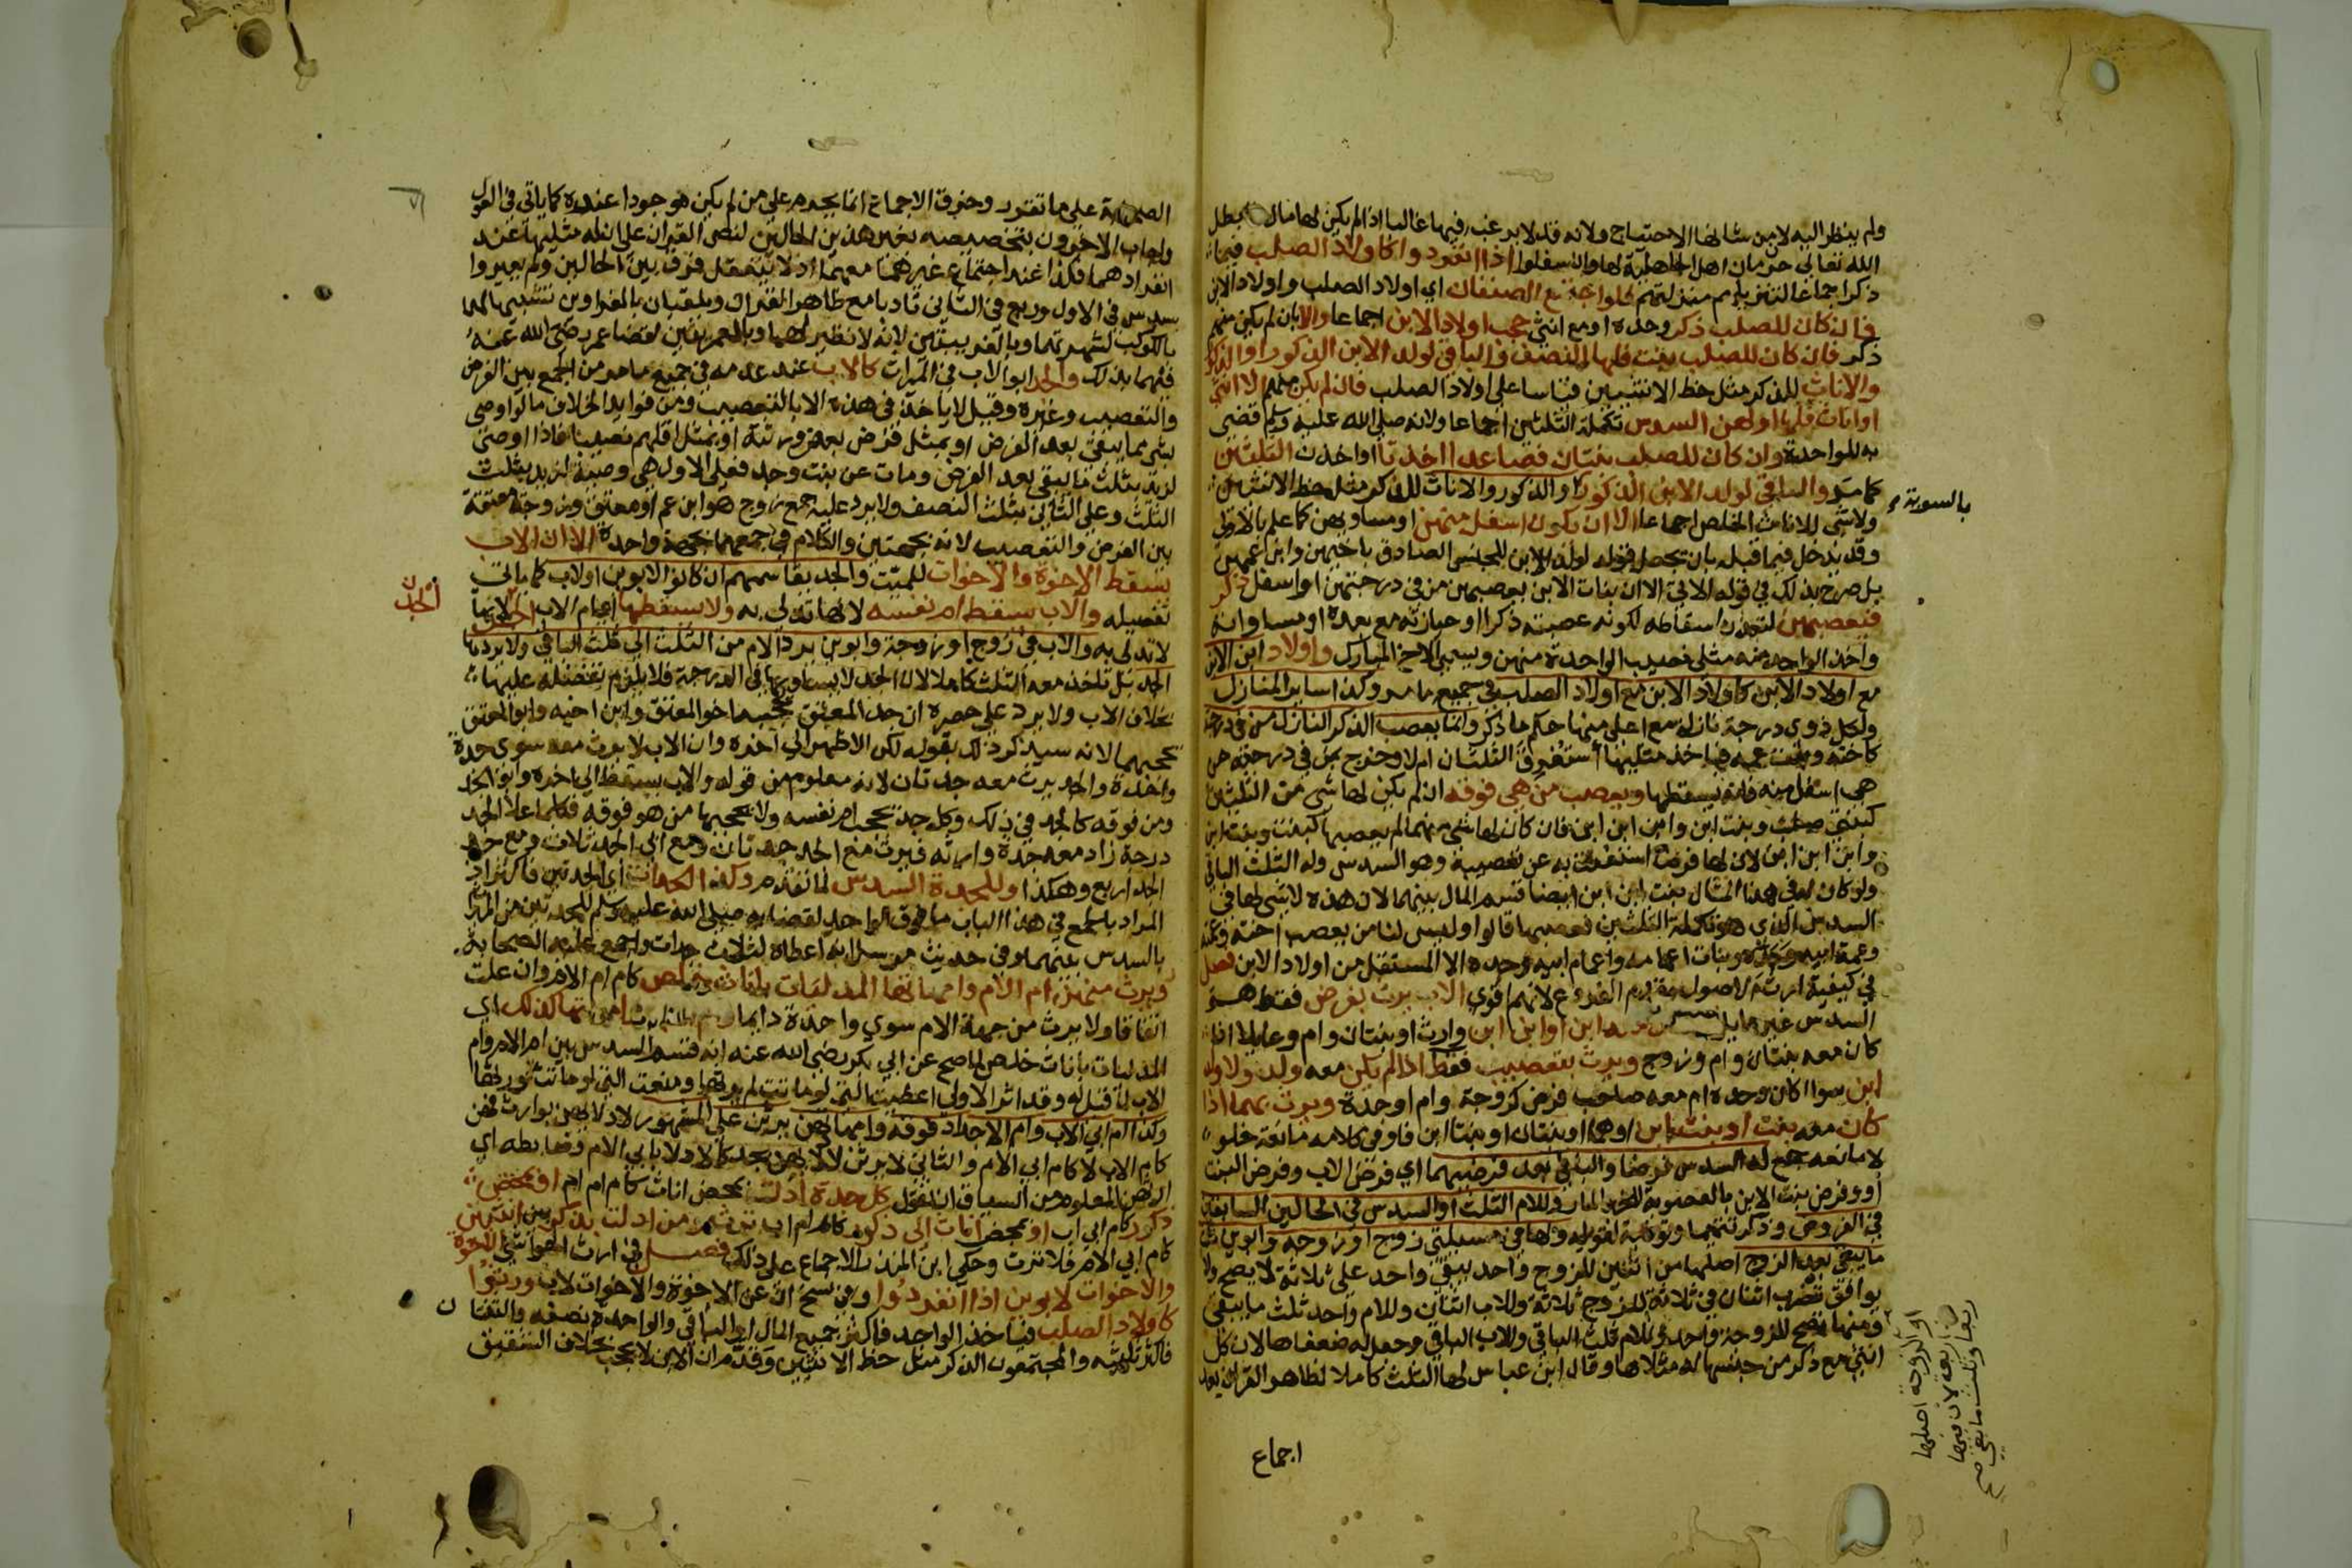 ولم ينظر اليه لان من شانها الاحتياج ولانه قد لا يرغب فيها غالبا اذا لم يكن لها مال فابطل
الله تعالى حرمان اهل الجاهلية لها وان سفلوا اذا انفردوا كاولاد الصلب فيما
ذكر اجماعا لتنزيلهم منزلتهم فلو اجتمع الصنفان اي اولاد الصلب واولاد الابن
فان كان للصلب ذكر وحده او مع انثى حجب اولاد الابن اجماعا والا بان لم يكن منهم
ذكر فان كان للصلب بنت فلها النصف والباقي لولد الابن الذكور او الذكور
والاناث للذكر مثل حظ الانثيين قياسا على اولاد الصلب فان لم يكن منهم الا انثى
او اناث فلها او لهن السدس تكملة الثلثين اجماعا ولانه صلى الله عليه وسلم قضى
به للواحدة وان كان للصلب بنتان فصاعدا اخذتا او اخذن الثلثين
كما مر والباقي لولد الابن الذكور او الذكور والاناث للذكر مثل حظ الانثيين
ولا شي للاناث الخلص اجماعا الا ان يكون اسفل منهن او مساويهن كما علم بالاولى
وقد يدخل فيما قبله بان تجعل قوله لولد الابن للجنس الصادق باخيهن وابن عمهن
بل صرح بذلك في قوله الاتي الا ان بنات الابن يعصبهن من في درجتهن او اسفل ذكر
فيعصبهن لتعذر اسقاطه لكونه عصبة ذكرا او حيازته مع بعده او مساواته
واخذ الواحد منه مثلي نصيب الواحدة منهن ويسمى الاخ المبارك واولاد ابن الابن
مع اولاد الابن كاولاد الابن مع اولاد الصلب في جميع ما مر وكذا سائر المنازل
ولكل ذوي درجة نازلة مع اعلى منها حكم ما ذكر وانما يعصب الذكر النازلة من في درجته
كاخته وبنت عمه فياخذ مثليها استغرق الثلثان ام لا وخرج بمن في درجته من
هي اسفل منه فانه يسقطها ويعصب من هي فوقه ان لم يكن لها شي من الثلثين
كبنتي صلب وبنت ابن وابن ابن ابن فان كان لها شي منهما لم يعصبها كبنت وبنت ابن
وابن ابن ابن لان لها فرضا استغنت به عن تعصيبه وهو السدس وله الثلث الباقي
ولو كان له في هذا المثال بنت ابن ابن ايضا قسم المال بينهما لان هذه لا شي لها في
السدس الذي هو تكملة الثلثين فعصبها قالوا وليس لنا من يعصب اخته وعمته
وعمة ابيه وجده وبنات اعمامه واعمام ابيه وجده الا المستقل من اولاد الابن فصل
في كيفية ارث الاصول وقدم الفروع لانهم اقوى الاب يرث بفرض فقط هو
السدس غير عايل اذا كان معه ابن او ابن ابن وارث او بنتان وام وعايلا اذا
كان معه بنتان وام وزوج ويرث بتعصيب فقط اذا لم يكن معه ولد ولا ولد
ابن سوا كان وحده ام معه صاحب فرض كزوجة وام او جدة ويرث بهما اذا
كان معه بنت او بنت ابن او هما او بنتان او بنتا ابن فاو في كلامه مانعة خلو
لا مانعة جمع له السدس فرضا والباقي بعد فرضيهما اي فرض الاب وفرض البنت
او وفرض بنت الابن بالعصوبة للخبر المار وللام الثلث او السدس في الحالين السابقين
في الفروض وذكر تتميما وتوطئة لقوله ولها في مسئلتي زوج او زوجة وابوين ثلث
ما يبقى بعد الزوج اصلها من اثنين للزوج واحد يبقى واحد على ثلاثة لا يصح ولا
يوافق تضرب اثنان في ثلاثة للزوج ثلاثة وللاب اثنان وللام واحد ثلث ما يبقى
ومنها تصح للزوجة واحد وللام ثلث الباقي وللاب الباقي وجعل له ضعفاها لان كل
انثى مع ذكر من جنسها له مثلاها وقال ابن عباس لها الثلث كاملا لظاهر القران بعد
اجماع
بالسوية
او الزوجة اصلها
من اربعة لان فيها
ربعا وثلث ما يبقى صح
الصحابة على ما تقرر وخرق الاجماع انما يحرم على من لم يكن موجودا عنده كما ياتي في العول
واجاب الاخرون بتخصيصه بغير هذين الحالين لنص القران على ان له مثليها عند
انفرادهما فكذا عند اجتماع غيرهما معهما اذ لا يتعقل فرق بين الحالين ولم يعبروا
بسدس في الاول وربع في الثاني تادبا مع ظاهر القران ويلقبان بالغراوين تشبيها لهما
بالكوكب لشهرتهما وبالغريبتين لانه لا نظير لهما وبالعمريتين لقضا عمر رضي الله عنه
فيهما بذلك والجد ابو الاب في الميراث كالاب عند عدمه في جميع ما مر من الجمع بين الفرض
والتعصيب وغيره وقيل لا ياخذ في هذه الا بالتعصيب ومن فوايد الخلاف ما لو اوصى
بشي مما يبقى بعد الفرض او بمثل فرض بعض ورثته او بمثل اقلهم نصيبا فاذا اوصى
لزيد بثلث ما يبقى بعد الفرض ومات عن بنت وجد فعلى الاول هي وصية لزيد بثلث
الثلث وعلى الثاني بثلث النصف ولا يرد عليه جمع زوج هو ابن عم او معتق وزوجة معتقة
بين الفرض والتعصيب لانه بجهتين والكلام في جمعهما بجهة واحدة الا ان الاب
يسقط الاخوة والاخوات للميت والجد يقاسمهم ان كانوا لابوين او لاب كما ياتي
تفصيله والاب يسقط ام نفسه لانها تدلي به ولا يسقطها اي ام الاب الجد لانها
لا تدلي به والاب في زوج او زوجة وابوين يرد الام من الثلث الى ثلث الباقي ولا يردها
الجد بل تاخذ معه الثلث كاملا لان الجد لا يساويها في الدرجة فلا يلزم تفضيله عليها
بخلاف الاب ولا يرد على حصره ان جد المعتق يحجبه اخو المعتق وابن اخيه وابو المعتق
يحجبهما لانه سيذكر ذلك بقوله لكن الاظهر الى اخره وان الاب لا يرث معه سوى جدة
واحدة والجد يرث معه جدتان لانه معلوم من قوله والاب يسقط الى اخره وابو الجد
ومن فوقه كالجد في ذلك وكل جد يحجب ام نفسه ولا يحجبها من هو فوقه فكلما علا الجد
درجة زاد معه جدة وارثة فيرث مع الجد جدتان ومع ابي الجد ثلاث ومع جد
الجد اربع وهكذا وللجدة السدس لما تقدم وكذا الجدات اي الجدتين فاكثر اذ
المراد بالجمع في هذا الباب ما فوق الواحد لقضايه صلى الله عليه وسلم للجدتين من الميراث
بالسدس بينهما وفي حديث مرسل انه اعطاه لثلاث جدات واجمع عليه الصحابة
ويرث منهن ام الام وامهاتها المدليات باناث خلص كام ام الام وان علت
اتفاقا ولا يرث من جهة الام سوى واحدة دايما وام الاب وامهاتها كذلك اي
المدليات باناث خلص لما صح عن ابي بكر رضي الله عنه انه قسم السدس بين ام الام وام
الاب لما قيل له وقد اثر الاولى اعطيت التي لو ماتت لم يرثها ومنعت التي لو ماتت ورثها
وكذا ام ابي الاب وام الاجداد فوقه وامهاتهن يرثن على المشهور لادلايهن بوارث فهن
كام الاب لا كام ابي الام والثاني لا يرثن لادلايهن بجد كالادلا بابي الام وضابطه اي
ارثهن المعلوم من السياق ان تقول كل جدة ادلت بمحض اناث كام ام ام او بمحض
ذكور كام ابي اب او بمحض اناث الى ذكور كام ام اب ترث ومن ادلت بذكر بين انثيين
كام ابي الام فلا ترث وحكى ابن المنذر الاجماع على ذلك فصل في ارث الحواشي الاخوة
والاخوات لابوين اذا انفردوا وفي نسخ اي عن الاخوة والاخوات لاب ورثوا
كاولاد الصلب فياخذ الواحد فاكثر جميع المال او الباقي والواحدة نصفه والثنتان
فاكثر ثلثيه والمجتمعون الذكر مثل حظ الانثيين وقدم ان الابن لا يحجب بخلاف الشقيق
الجد